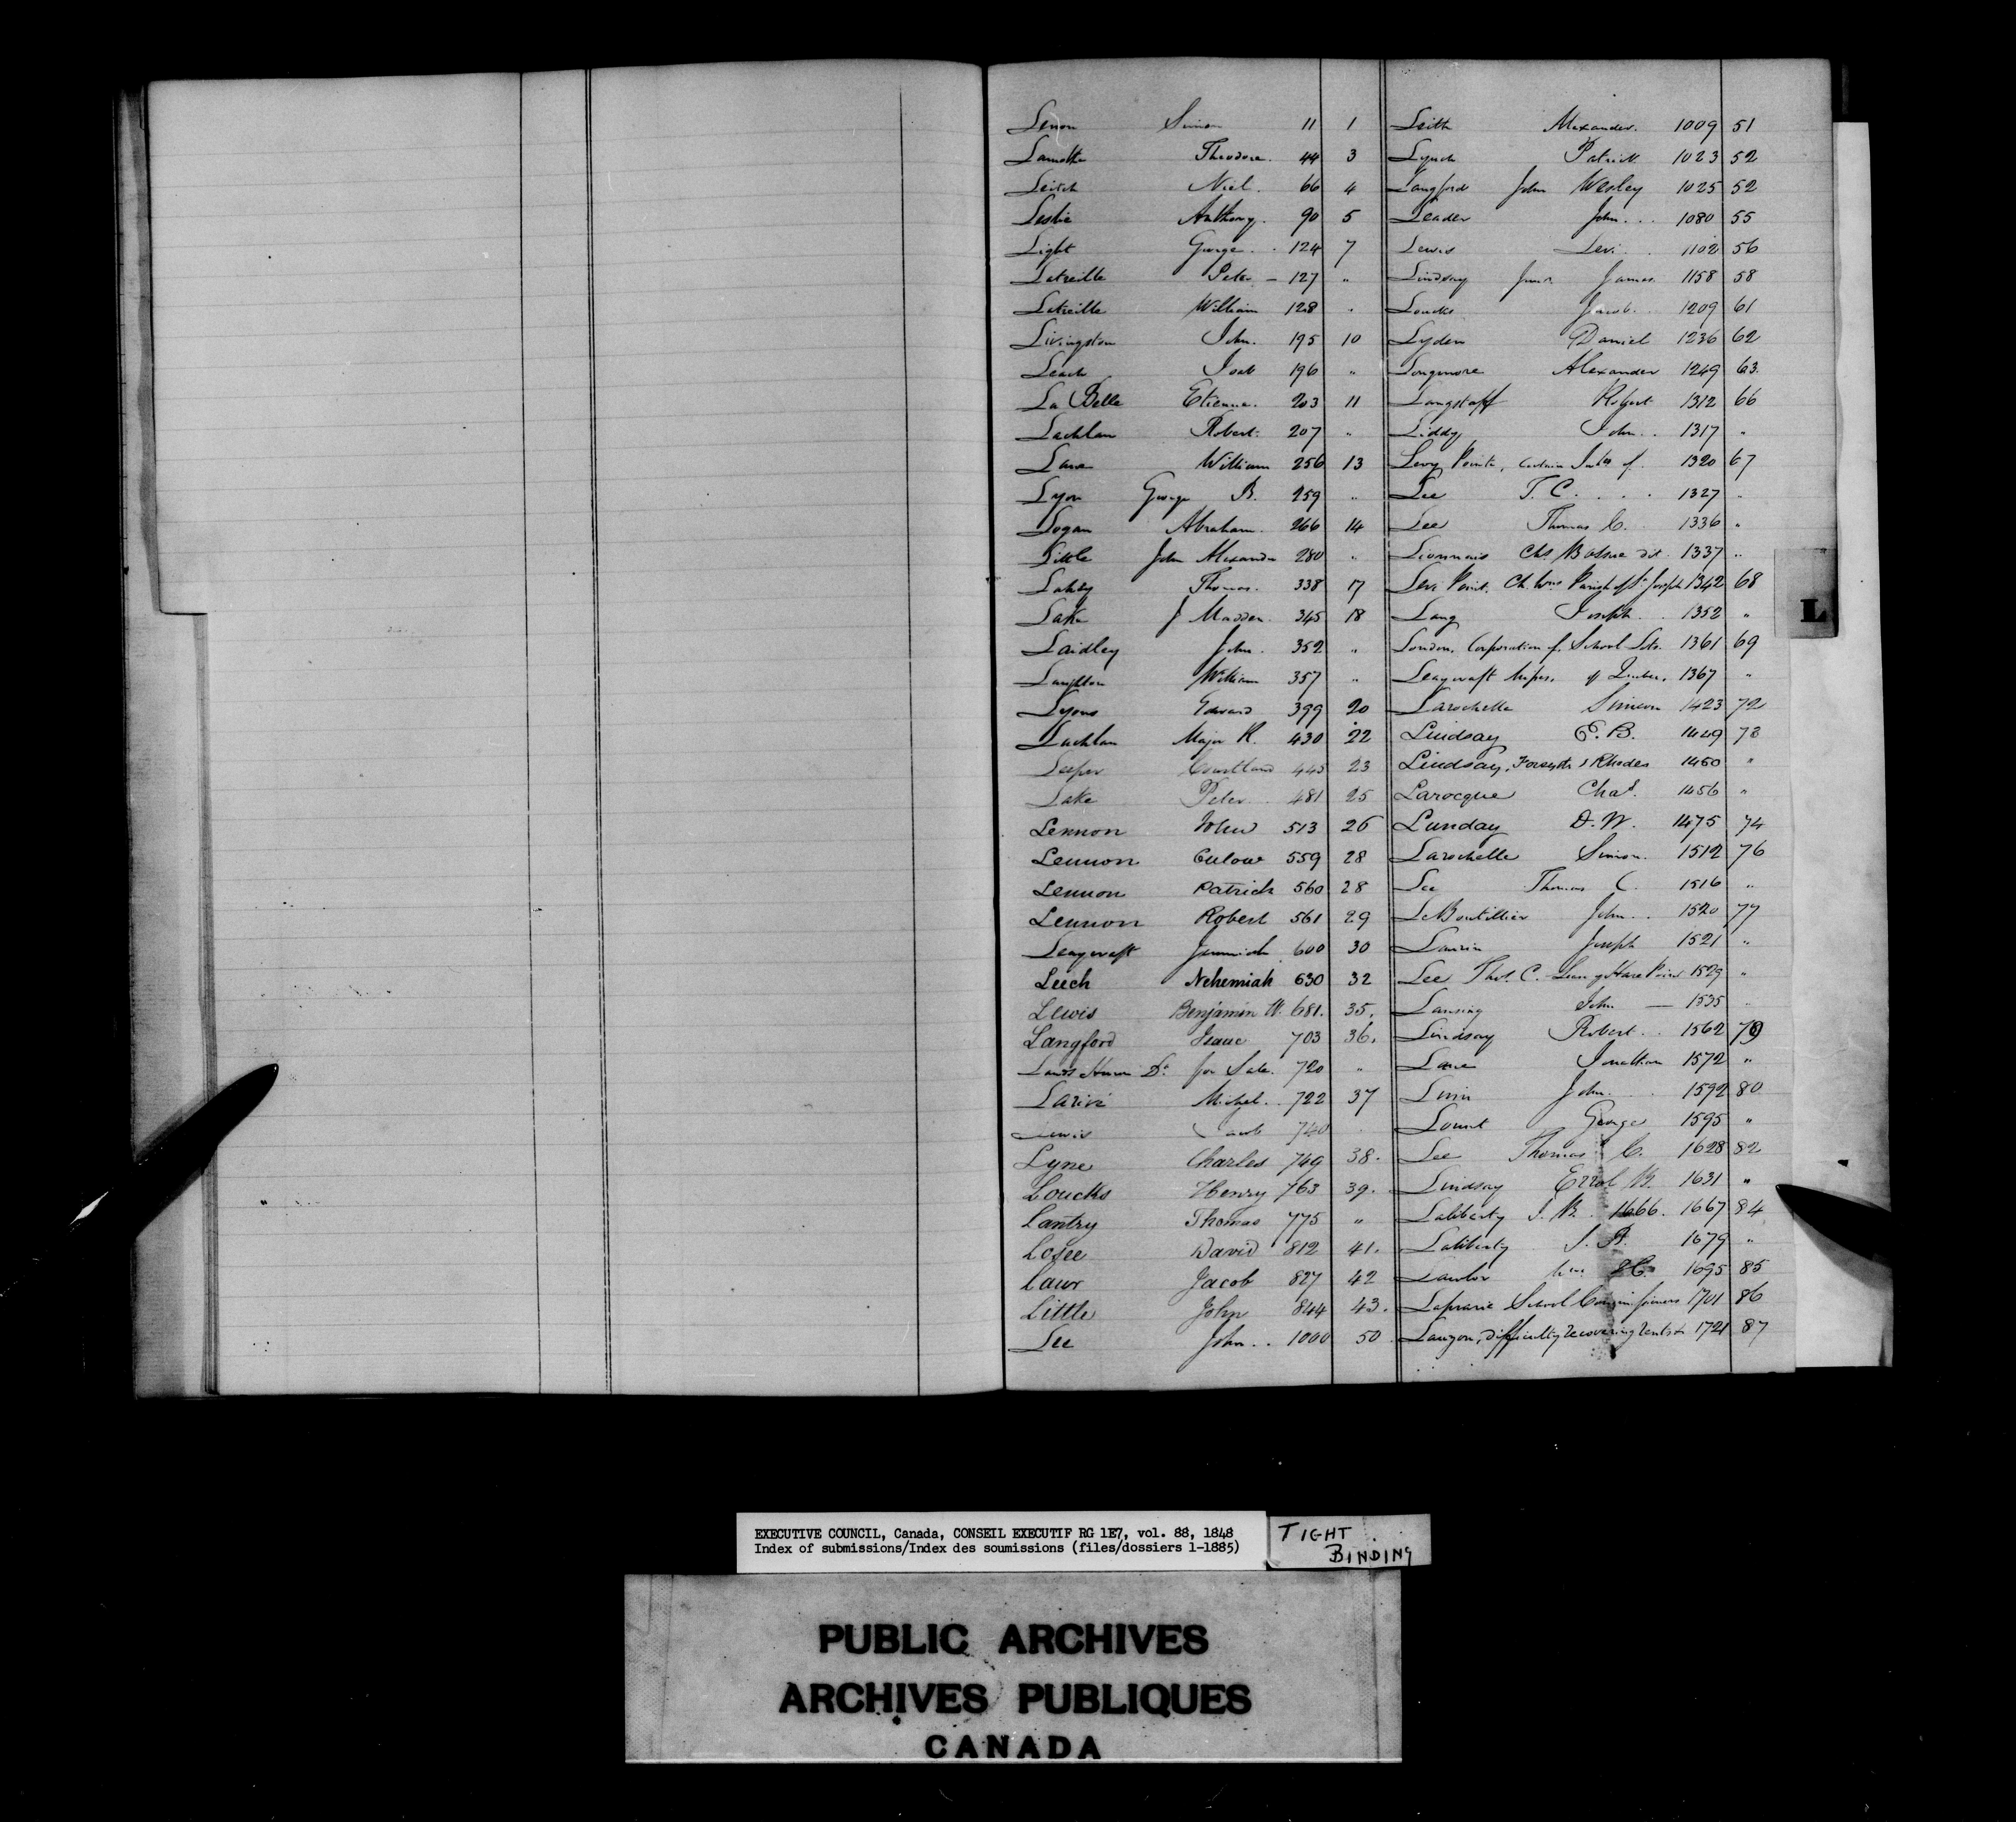 Lenon Simon 11 1
Lamothe Theodore. 44 3
Leitch Niel. 66 4
Leslie Anthony. 90 5
Light George . . 124 7
Latreille Peter – 127 "
Latreille William 128 "
Livingston John. 195 10
Leach Isab 196 "
La Belle Etienne. 203 11
Lachlan Robert. 207 "
Lane William 256 13
Lyon George B. 259 "
Logan Abraham. 266 14
Little John Alexander 280 "
Lahey Thomas. 338 17
Lake J Madden. 345 18
Laidley John. 352 "
Langhton William 357 "
Lyons Edward 399 20
Lachlan Major R. 430 22
Leeper Courtland 445 23
Lake Peter 481 25
Lennon John 513 26
Lennon 559 28
Lennon Patrick 560 28
Lennon Robert 561 29
Leaycraft Jeremiah 600 30
Leech Nehemiah 630 32
Lewis Benjamin W. 681. 35.
Langford Isaac 703 36.
Lands Huron Dt for Sale. 720 "
Larivé Michel. 722 37
Lewis Jacob 740
Lyne Charles 749 38.
Loucks Henry 763 39.
Lantry Thomas 775 "
Losee David 812 41.
Laur Jacob 827 42
Little John 844 43.
Lee John . . 1000 50
Leith Alexander. 1009 51
Lynch Patrick 1023 52
Langford John Wesley 1025 52
Leader John . . 1080 55
Lewis Levi . 1102 56
Lindsay Junr. James. 1158 58
Loucks Jacob. 1209 61
Lyden Daniel 1236 62
Longmore Alexander 1249 63.
Langstaff Robert 1312 66
Liddy John . . 1317 "
Levy Point, Certain Inhts of. 1320 67
Lee T. C. . . . 1327 "
Lee Thomas C. 1336 "
Lionnais Chs Basire dit. 1337 "
Levi Point. Ch. Wns Parish of St Joseph 1342 68
Lang Joseph . . 1352 "
London, Corporation of, School Lots. 1361 69
Leaycraft of Quebec. 1367 "
Larochelle Simeon 1423 72
Lindsay E. B. 1449 73
Lindsay, Forsyth & Rhodes 1450 "
Larocque Chas. 1456 "
Lunday D. W. 1475 74
Larochelle Simon. 1512 76
Lee Thomas C. 1516 "
LeBoutillier John . . 1520 77
Laurin Joseph 1521 "
Lee Thos. C. 1529 "
Lansing John — 1535 "
Lindsay Robert . . 1562 79
Lane Jonathan 1572 "
Linn John . . 1592 80
Lount George 1595 "
Lee Thomas C. 1628 82
Lindsay Errol B. 1631 "
Laliberty J. B. 1666. 1667 84
Laliberty J. B. 1679 "
Lawlor Wm. H. 1695 85
Laprarie School Commissioners 1701 86
Lauzon, difficulty recovering rents &c 1721 87
L
EXECUTIVE COUNCIL, Canada, CONSEIL EXECUTIF RG 1E7, vol. 88, 1848
Index of submissions/Index des soumissions (files/dossiers 1-1885)
TIGHT
BINDING
PUBLIC ARCHIVES
ARCHIVES PUBLIQUES
CANADA